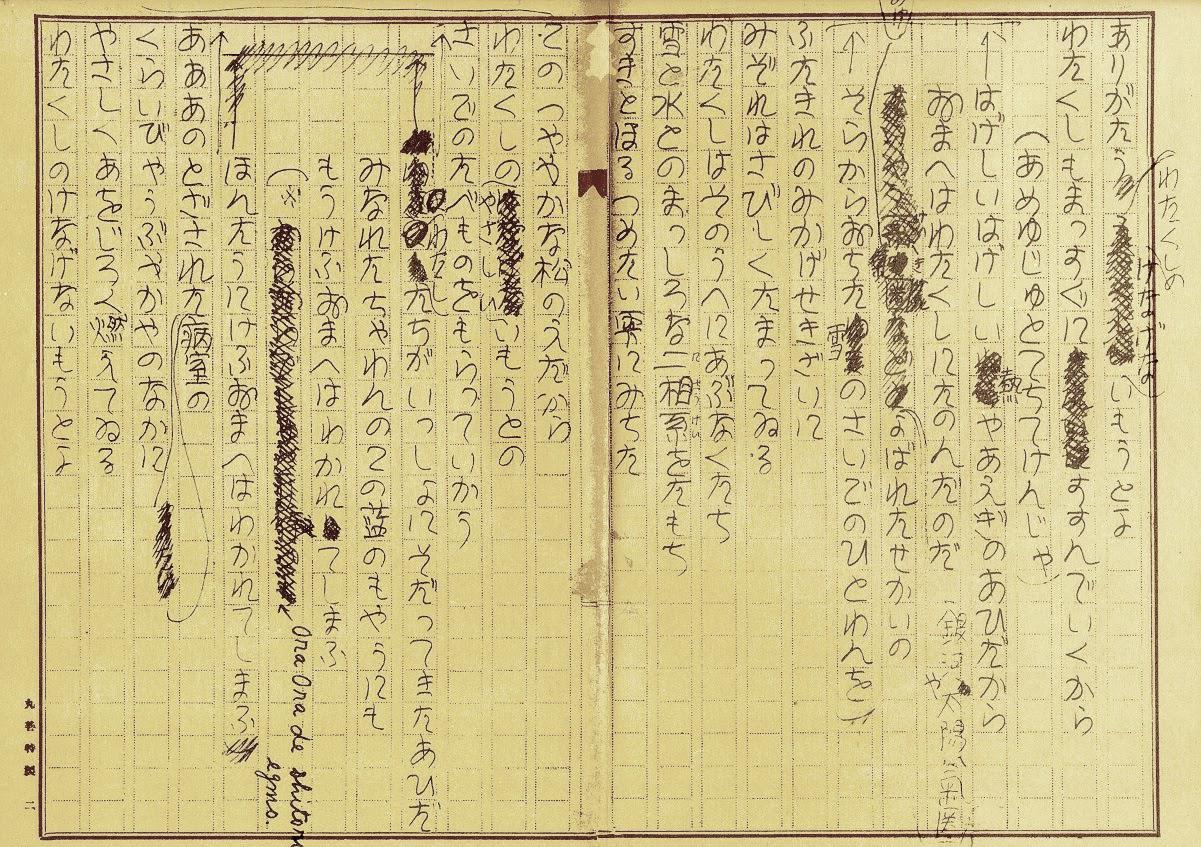 わたくしの
けなげな
ありがたう いもうとよ
わたくしもまっすぐに すすんでいくから
(あめゆじゅとてちてけんじや)
はげしいはげしい 熱 やあえぎのあひだから
おまへはわたくしにたのんだのだ
銀河や太陽 気圏
などと よばれたせかいの
そらからおちた 雪 のさいごのひとわんを
ふたきれのみかげせきざいに
みぞれはさびしくたまってゐる
わたくしはそのうへにあぶなくたち
雪と水とのまっしろな二相系をたもち
すきとほるつめたい雫にみちた
このつややかな松のえだから
わたくしの やさしい いもうとの
さいごのたべものをもらっていかう
わたし
たちがいっしょにそだってきたあひだ
みなれたちゃわんのこの藍のもやうにも
もうけふおまへはわかれ てしまふ
Ora Ora de shitori egmo.
ほんたうにけふおまへはわかれてしまふ
あああのとざされた病室の
くらいびゃうぶやかやのなかに
やさしくあをじろく燃えてゐる
わたくしのけなげないもうとよ
丸善特製 二